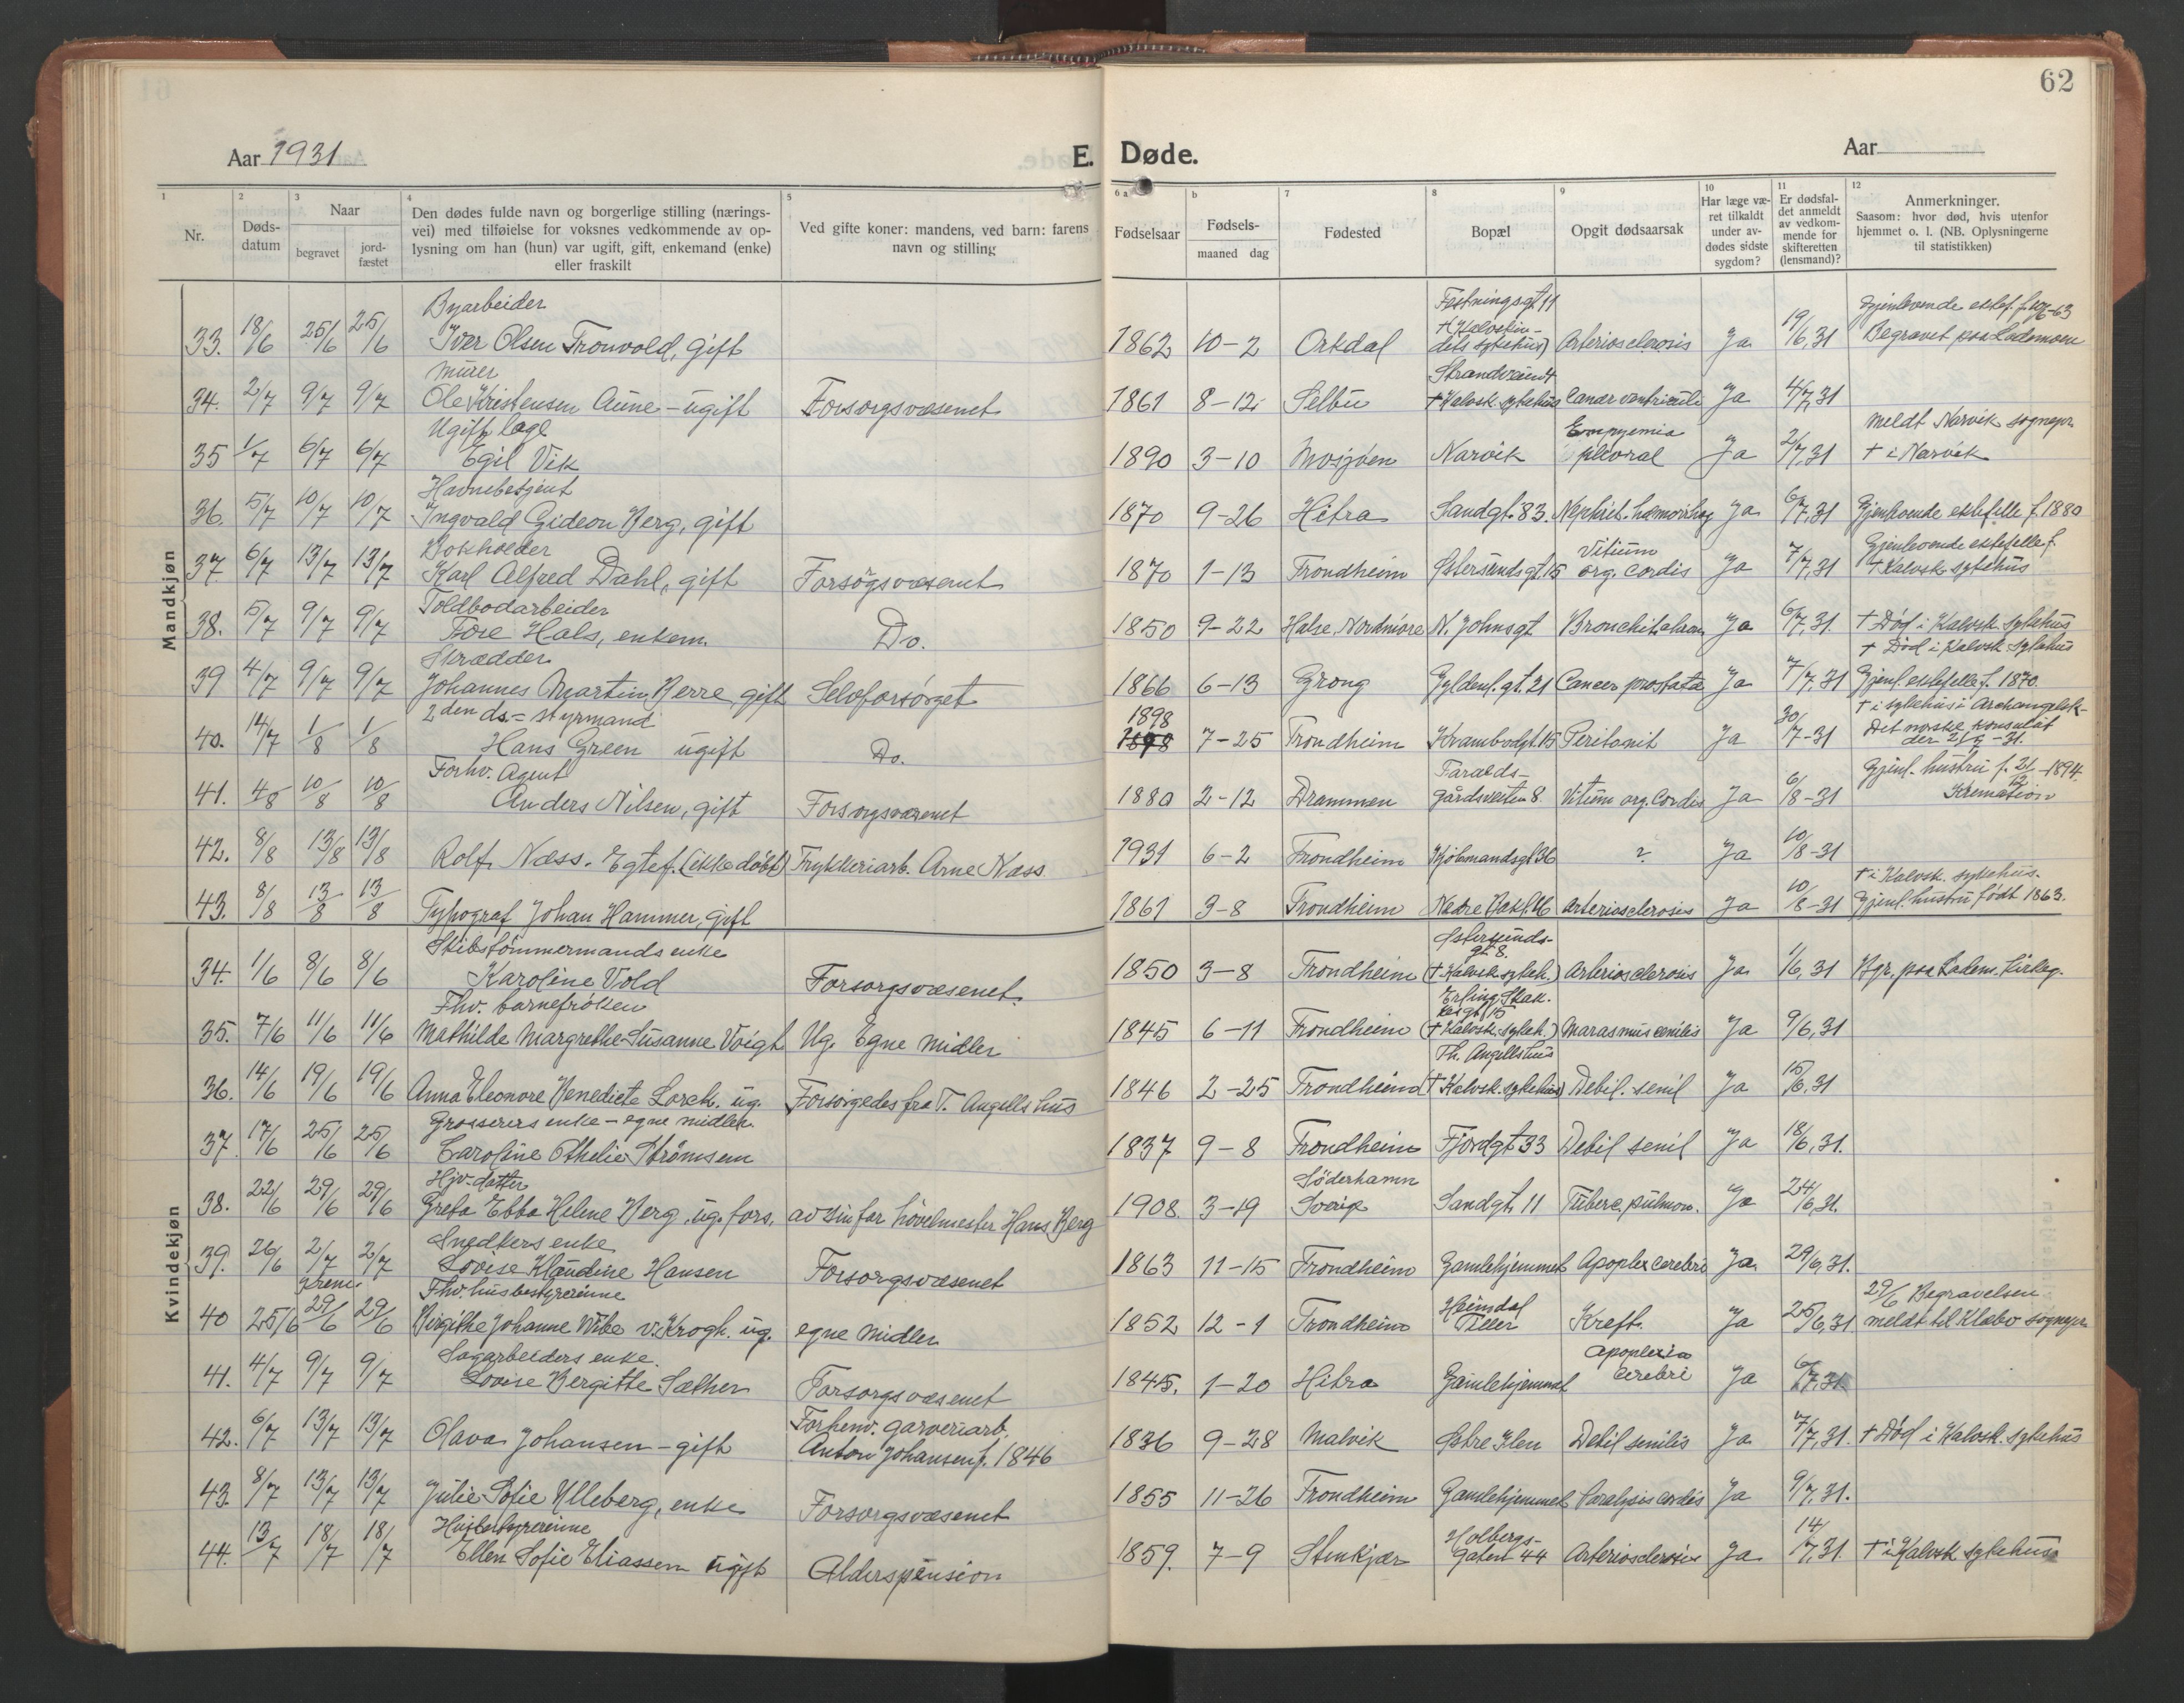 62
Aar 1931
E. Døde.
Aar
1 2 3 4 5 6 a b 7 8 9 10 11 12
Nr.
Døds-
datum
Naar
begravet
jord-
fæstet
Den dødes fulde navn og borgerlige stilling (nærings-
vei) med tilføielse for voksnes vedkommende av op-
lysning om han (hun) var ugift, gift, enkemand (enke)
eller fraskilt
Ved gifte koner: mandens, ved barn: farens
navn og stilling
Fødselsaar
Fødsels-
maaned dag
Fødested
Bopæl
Opgit dødsaarsak
Har læge væ-
ret tilkaldt
under av-
dødes sidste
sygdom?
Er dødsfal-
det anmeldt
av vedkom-
mende for
skifteretten
(lensmand)?
Anmerkninger.
Saasom: hvor død, hvis utenfor
hjemmet o. l. (NB. Oplysningerne
til statistikken)
Mandkjøn
Byarbeider Festningsgt. 11 Gjenlevende ektef. f.
33. 18/6 25/6 25/6 Iver Olsen Tronvold, gift 1862 10-2 Orkdal († Kalvskin-dets sykehus) Arteriosclerosis Ja 19/6,31 Begravet paa Lademoen
Murer Strandveien
34. 2/7 9/7 9/7 Ole Kristensen Aune - ugift Forsorgsvæsenet 1861 8-12 Selbu † Kalvsk. sykehus Cancer ventriculi Ja 4/7,31
Ugift læge Empyemia meldt Narvik sognepr.
35 1/7 6/7 6/7 Egil Vik 1890 3-10 Mosjøen Narvik pleural Ja 2/7,31 † i Narvik
Havnebetjent
36. 5/7 10/7 10/7 Ingvald Gideon Berg, gift 1870 9-26 Hitra Sandgt. 83. Nephrit. hæmorrhag Ja 6/7,31 Gjenlevende ektefelle f. 1880
Bokholder Vitium Gjenlevende ektefelle f.
37 6/7 13/7 13/7 Karl Alfred Dahl, gift Forsorgsvæsenet 1870 1-13 Trondheim Østersundsgt. 15 org. cordis Ja 7/7,31 † Kalvsk. sykehus
Toldbodarbeider
38. 5/7 9/7 9/7 Tore Hals, enkem. Do. 1850 9-22 Halse, Nordmøre N. Johnsgt. Ja 6/7,31. † Død i Kalvsk. sykehus
Skrædder † Død i Kalvsk. sykehus
39 4/7 9/7 9/7 Johannes Martin Berre, gift Selvforsørget 1866 6-13 Grong Gyldenl. gt. 21 Cancer prostata Ja 7/7,31 Gjenl. ektefelle f. 1870.
2den ds. = styrmand 1898 † i sykehus i Archangelsk-
40. 14/7 1/8 1/8 Hans Green ugift Do. 7-25 Trondheim Krambodgt. 15 Peritonit Ja 30/7-31 Det norske konsulat
Forhv. Agent Taralds- Gjenl. hustru f. 21/12-1894.
41. 4/8 10/8 10/8 Anders Nilsen, gift Forsorgsvæsenet 1880 2-12 Drammen gårdsveiten 8. Vitium org. Cordis Ja 6/8-31 Kremation
42. 8/8 13/8 13/8 Rolf Næss. Egtef. (ikke døbt) Trykkeriarb. Arne Næss 1931 6-2 Trondheim Kjøbmandsgt. 36 ? Ja 10/8-31
† i Kalvsk. sykehus.
43. 8/8 13/8 13/8 Typograf Johan Hammer, gift 1861 3-8 Trondheim Nedre Bakl. 16 Arteriosclerosis Ja 10/8-31 Gjenl. hustru født 1863.
Kvindekjøn
Skibstømmermands enke Østersunds-gt. 8.
34. 1/6 8/6 8/6 Karoline Vold Forsorgsvæsenet. 1850 3-8 Trondheim († Kalvsk. sykeh.) Arteriosclerosis Ja 1/6,31 Bgr. paa Ladem. kirkeg.
Fhv. barnefrøken Erling Skak-kesgt 15
35. 7/6 11/6 11/6 Mathilde Margrethe Susanne Voigt Ug. Egne midler 1845 6-11 Trondheim († Kalvsk. sykeh.) Marasmus senilis Ja 9/6,31
Th. Angellshus
36. 14/6 19/6 19/6 Anna Eleonore Benedicte Lorck. ug. Forsørgedes fra T. Angells hus 1846 2-25 Trondheim († Kalvsk. sykehus) Debil. senil Ja 15/6,31
Grosserers enke - egne midler
37. 17/6 25/6 25/6 Caroline Othelie Strømsem 1837 9-8 Trondheim Fjordgt 33 Debil senil Ja 18/6,31.
Hjv. datter Söderhamn
38. 22/6 29/6 29/6 Greta Ebba Helene Berg, ug. fors. av sin far høvelmester Hans Berg 1908. 3-19 Sverige Sandgt. 11 Tuberc. pulmon. Ja 24/6,31.
Snedkers enke
39. 26/6 2/7 2/7 Lovise Klaudine Hansen Forsorgsvæsenet 1863 11-15 Trondheim Gamlehjemmet Apoplex cerebri Ja. 29/6,31.
Krem. Fhv. husbestyrerinne Heimdal 29/6 Begravelsen
40 25/6 29/6 29/6 Birgithe Johanne Wibe v. Krogh. ug. egne midler 1852 12-1 Trondheim Tiller Kreft. Ja 25/6,31 meldt til Klæbo sognepr
Sagarbeiders enke. Apoplexia
41. 4/7 9/7 9/7 Lovise Bergitte Sæther Forsorgsvæsenet 1845. 1-20 Hitra Gamlehjemmet cerebri Ja 6/7,31
Forhenv. garveriarb.
42. 6/7 13/7 13/7 Olava Johansen - gift Anton Johansen f. 1846 1836 9-28 Malvik Østre Ilen Debil senilis Ja 7/7,31. † Død i Kalvsk. sykehus
43. 8/7 13/7 13/7 Julie Sofie Ulleberg, enke Forsorgsvæsenet 1855 11-26 Trondheim Gamlehjemmet Paralysis cordis Ja 9/7,31.
Husbestyrerinne Holbergs-
44. 13/7 18/7 18/7 Ellen Sofie Eliassen ugift Alderspension 1859. 7-9 Stenkjær gaten 44 Arteriosclerosis Ja 14/7,31. † i Kalvsk sykehus